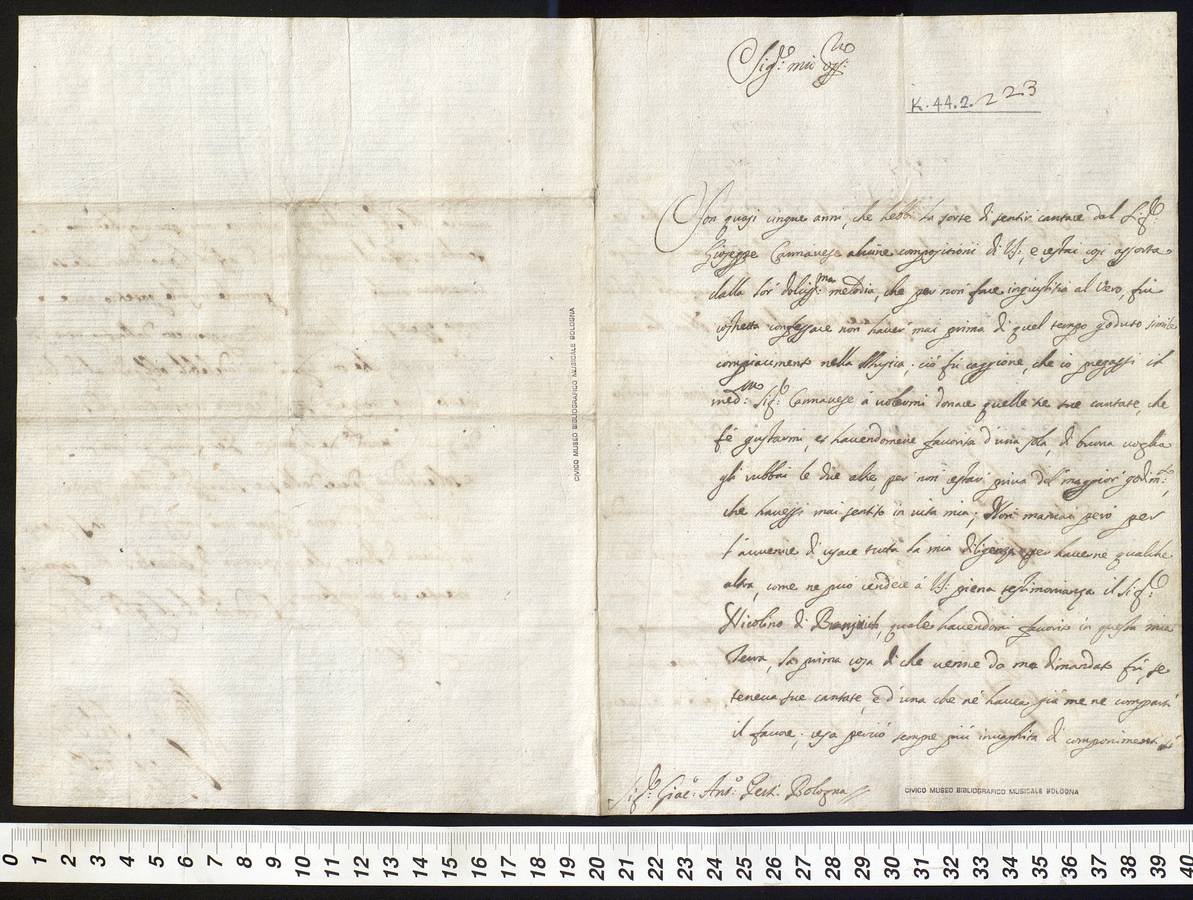 Sig.re mio oss.mo
K.44.2.223
Son quasi cinque anni, che hebbi la sorte di sentir cantare dal Sig.re
Giuseppe Cannavese alcune compositioni di V.S., e restai così assorta
dalla lor dolciss:ma melodia, che per non fare ingiustitia al vero, fui
costretta confessare non haver mai prima di quel tempo goduto simile
compiacimento nella Musica. ciò fù caggione, che io pregassi il
med:mo Sig.r Cannavese à volermi donare quelle tre sue cantate, che
fè gustarmi, et havendomene favorita d'una sola, di buona voglia
gli rubbai le due altre, per non restar priva del maggior godim:to,
che havessi mai sentito in vita mia; Non mancai però per
l'avvenire di usare tutta la mia diligenza per haverne qualche
altra, come ne può rendere à V.S. piena testimonianza il Sig.re
Nicolino di, quale havendomi favorita in questa mia
Terra, la prima cosa di che venne da me dimandato fù, se
teneva sue cantate, e d'una che ne havea già me ne compartì
il favore; resa perciò sempre più invaghita di componimenti sì
Sig.re Giac.o Ant.o Perti. Bologna
CIVICO MUSEO BIBLIOGRAFICO MUSICALE BOLOGNA
CIVICO MUSEO BIBLIOGRAFICO MUSICALE BOLOGNA
0 1 2 3 4 5 6 7 8 9 10 11 12 13 14 15 16 17 18 19 20 21 22 23 24 25 26 27 28 29 30 31 32 33 34 35 36 37 38 39 40